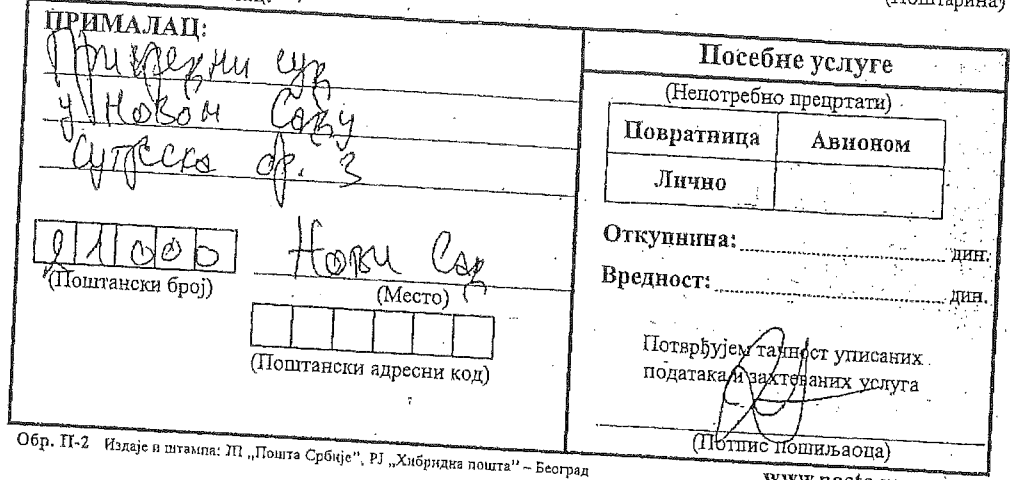 (Поштарина)
ПРИМАЛАЦ:
Привредни суд
у Новом Саду
Сутјеска бр. 3
21000 Нови Сад
(Поштански број) (Место)
(Поштански адресни код)
Посебне услуге
(Непотребно прецртати)
Повратница Авионом
Лично
Откупнина: дин.
Вредност: дин.
Потврђујем тачност уписаних
података и захтеваних услуга
(Потпис пошиљаоца)
Обр. П-2 Издаје и штампа: ЈП „Пошта Србије”, РЈ „Хибридна пошта” – Београд